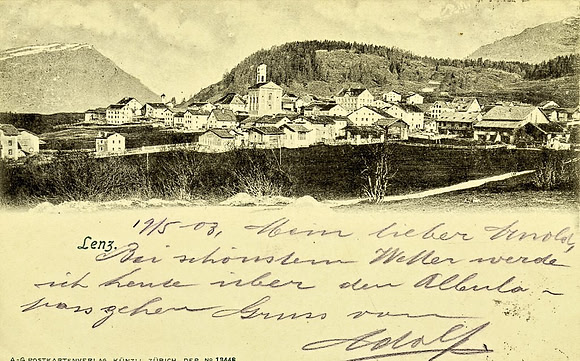 Lenz.
19/5 03, Mein lieber Arnold,
Bei schönstem Wetter werde
ich heute über den Albula-
pass gehen Gruss von
Adolf.
A-G POSTKARTENVERLAG KÜNZLI, ZÜRICH, DEP. No 13448